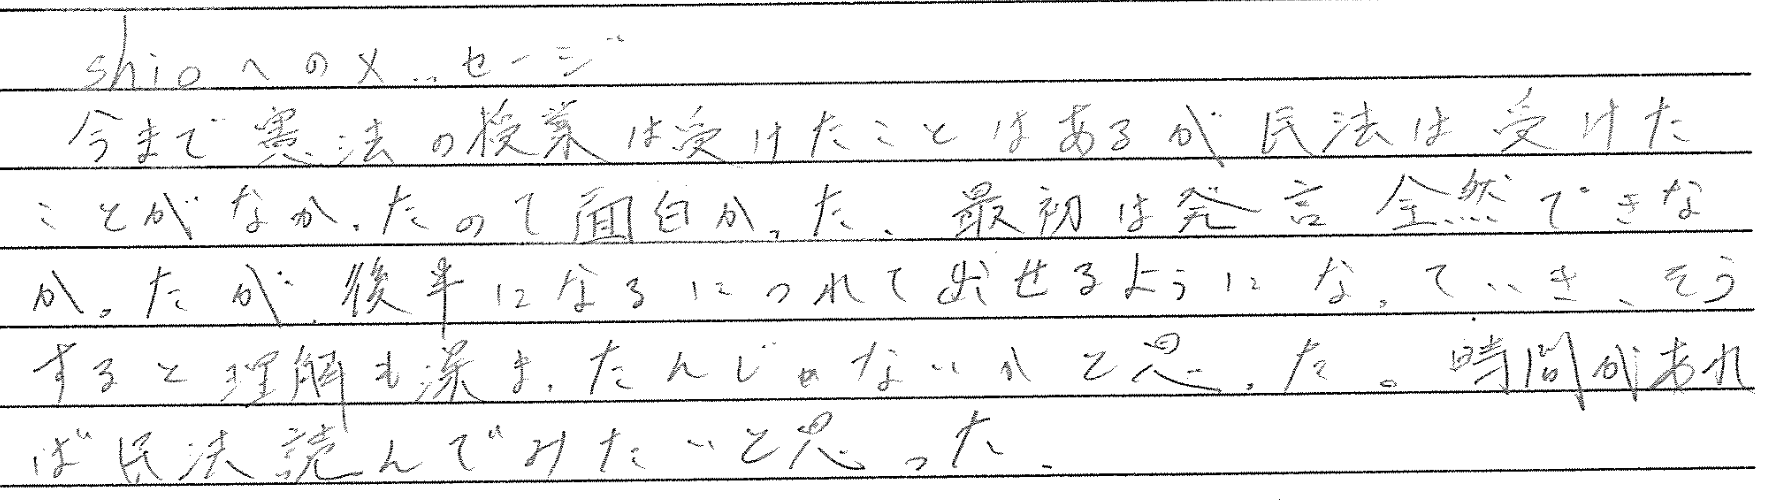 shioへのメッセージ
今まで憲法の授業は受けたことはあるが民法は受けた
ことがなかったので面白かった。最初は発言全然できな
かったが、後半になるにつれて出せるようになっていき、そう
すると理解も深まったんじゃないかと思った。時間があれ
ば民法読んでみたいと思った。